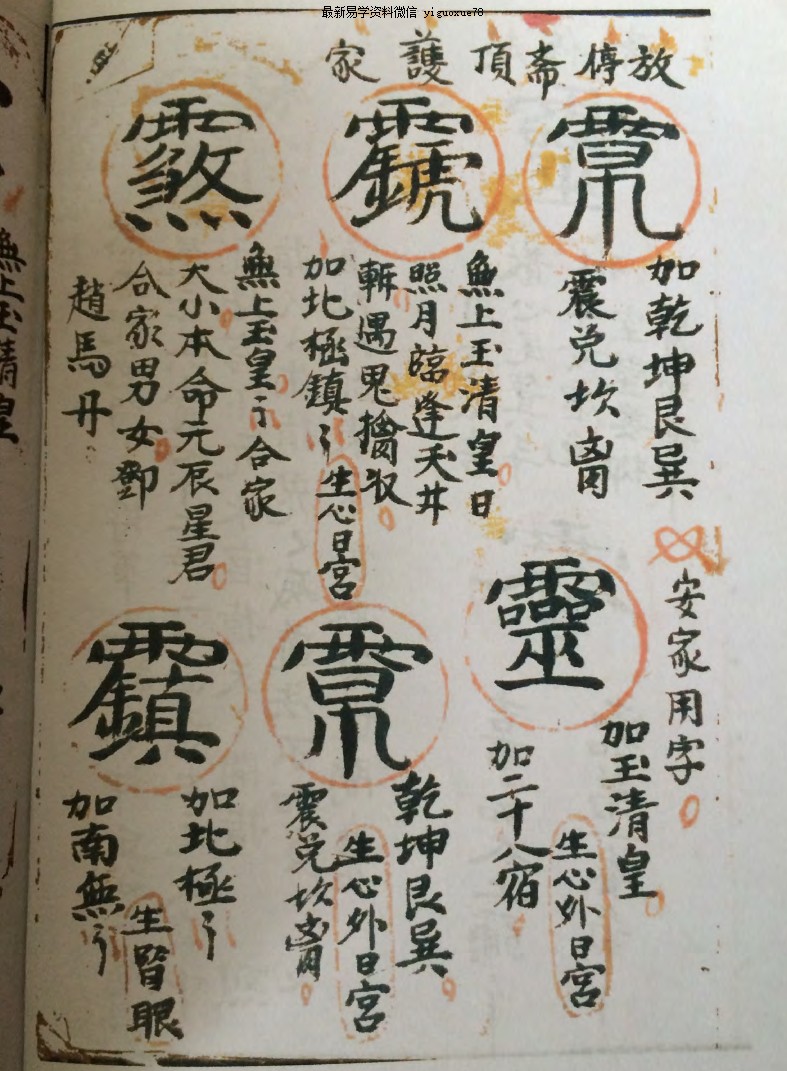 最新易学资料微信 yiguoxue78
放停斋頂護家
加乾坤艮巽
震兑坎离
無上玉清皇日
照月臨逢天井
斬遇鬼擒收
加北極鎮
生心日宮
無上玉皇 合家
大小本命元辰星君
合家男女鄧
趙馬丹
安家用字
靈
加玉清皇
生心外日宮
加二十八宿
乾坤艮巽
生心外日宮
震兑坎离
加北極
生眉眼
加南無
無上玉清皇